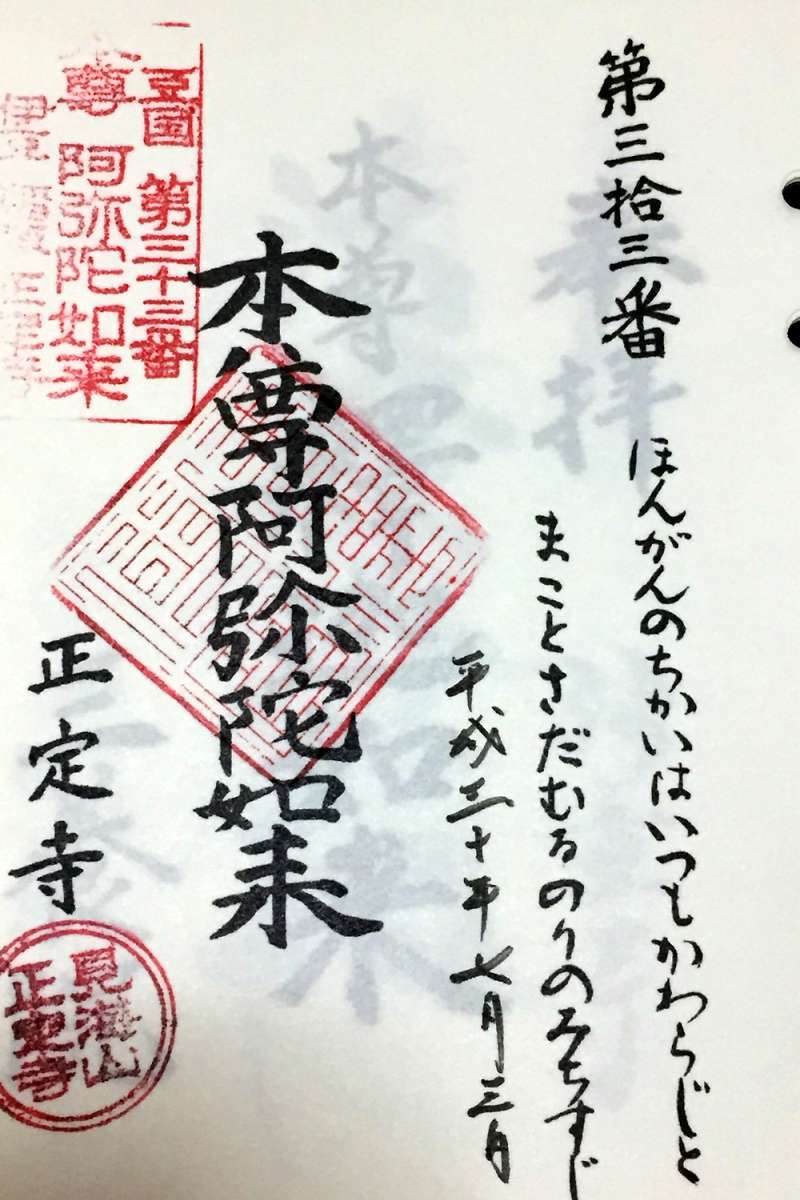 第三拾三番
ほんがんのちかいはいつもかわらじと
まことさだむるのりのみちすじ
平成三十年七月三日
本尊阿弥陀如来
正定寺
豆国 第三十三番
尊 阿弥陀如来
見海山
正定寺